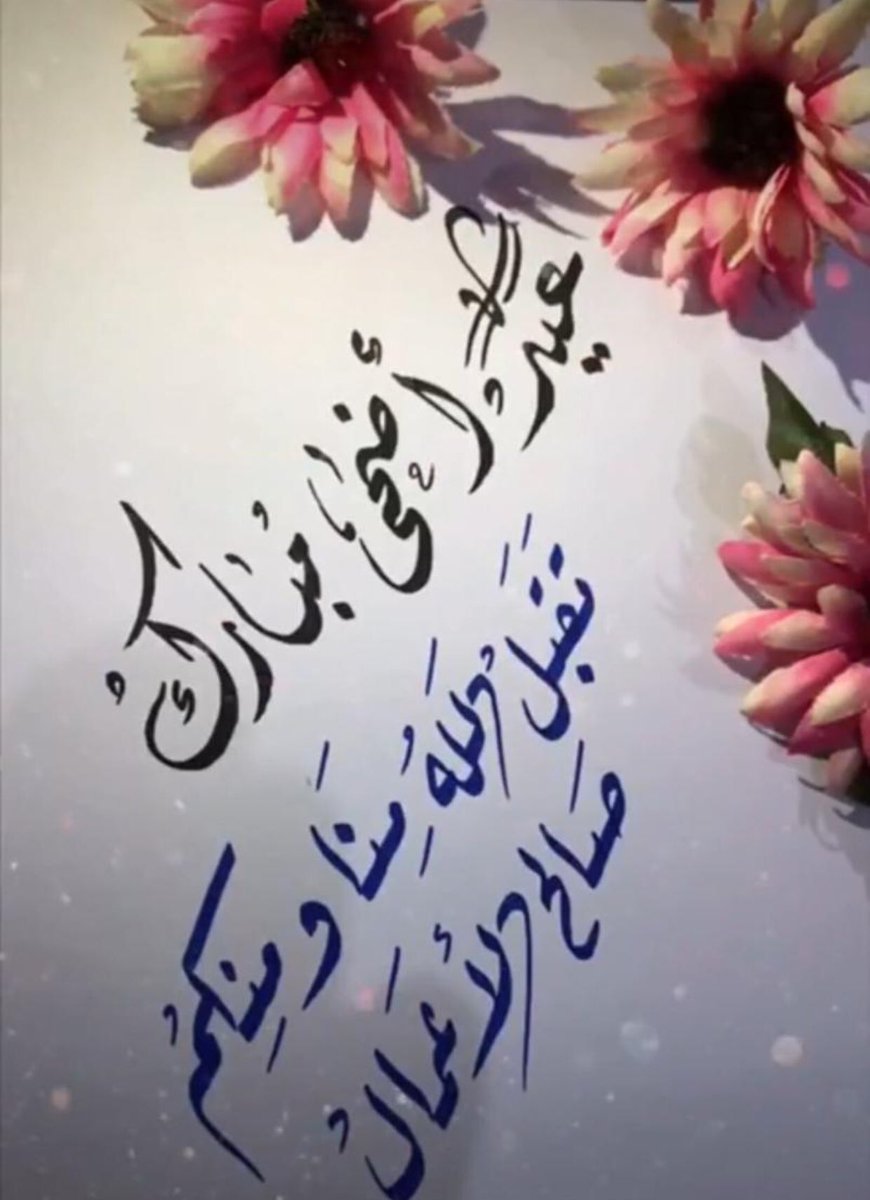 عيدُ أضْحَى مُبَارَكْ
تقبَّلَ اللهُ مِنَّا وَمِنكُمْ
صَالحَ الأعمَالْ